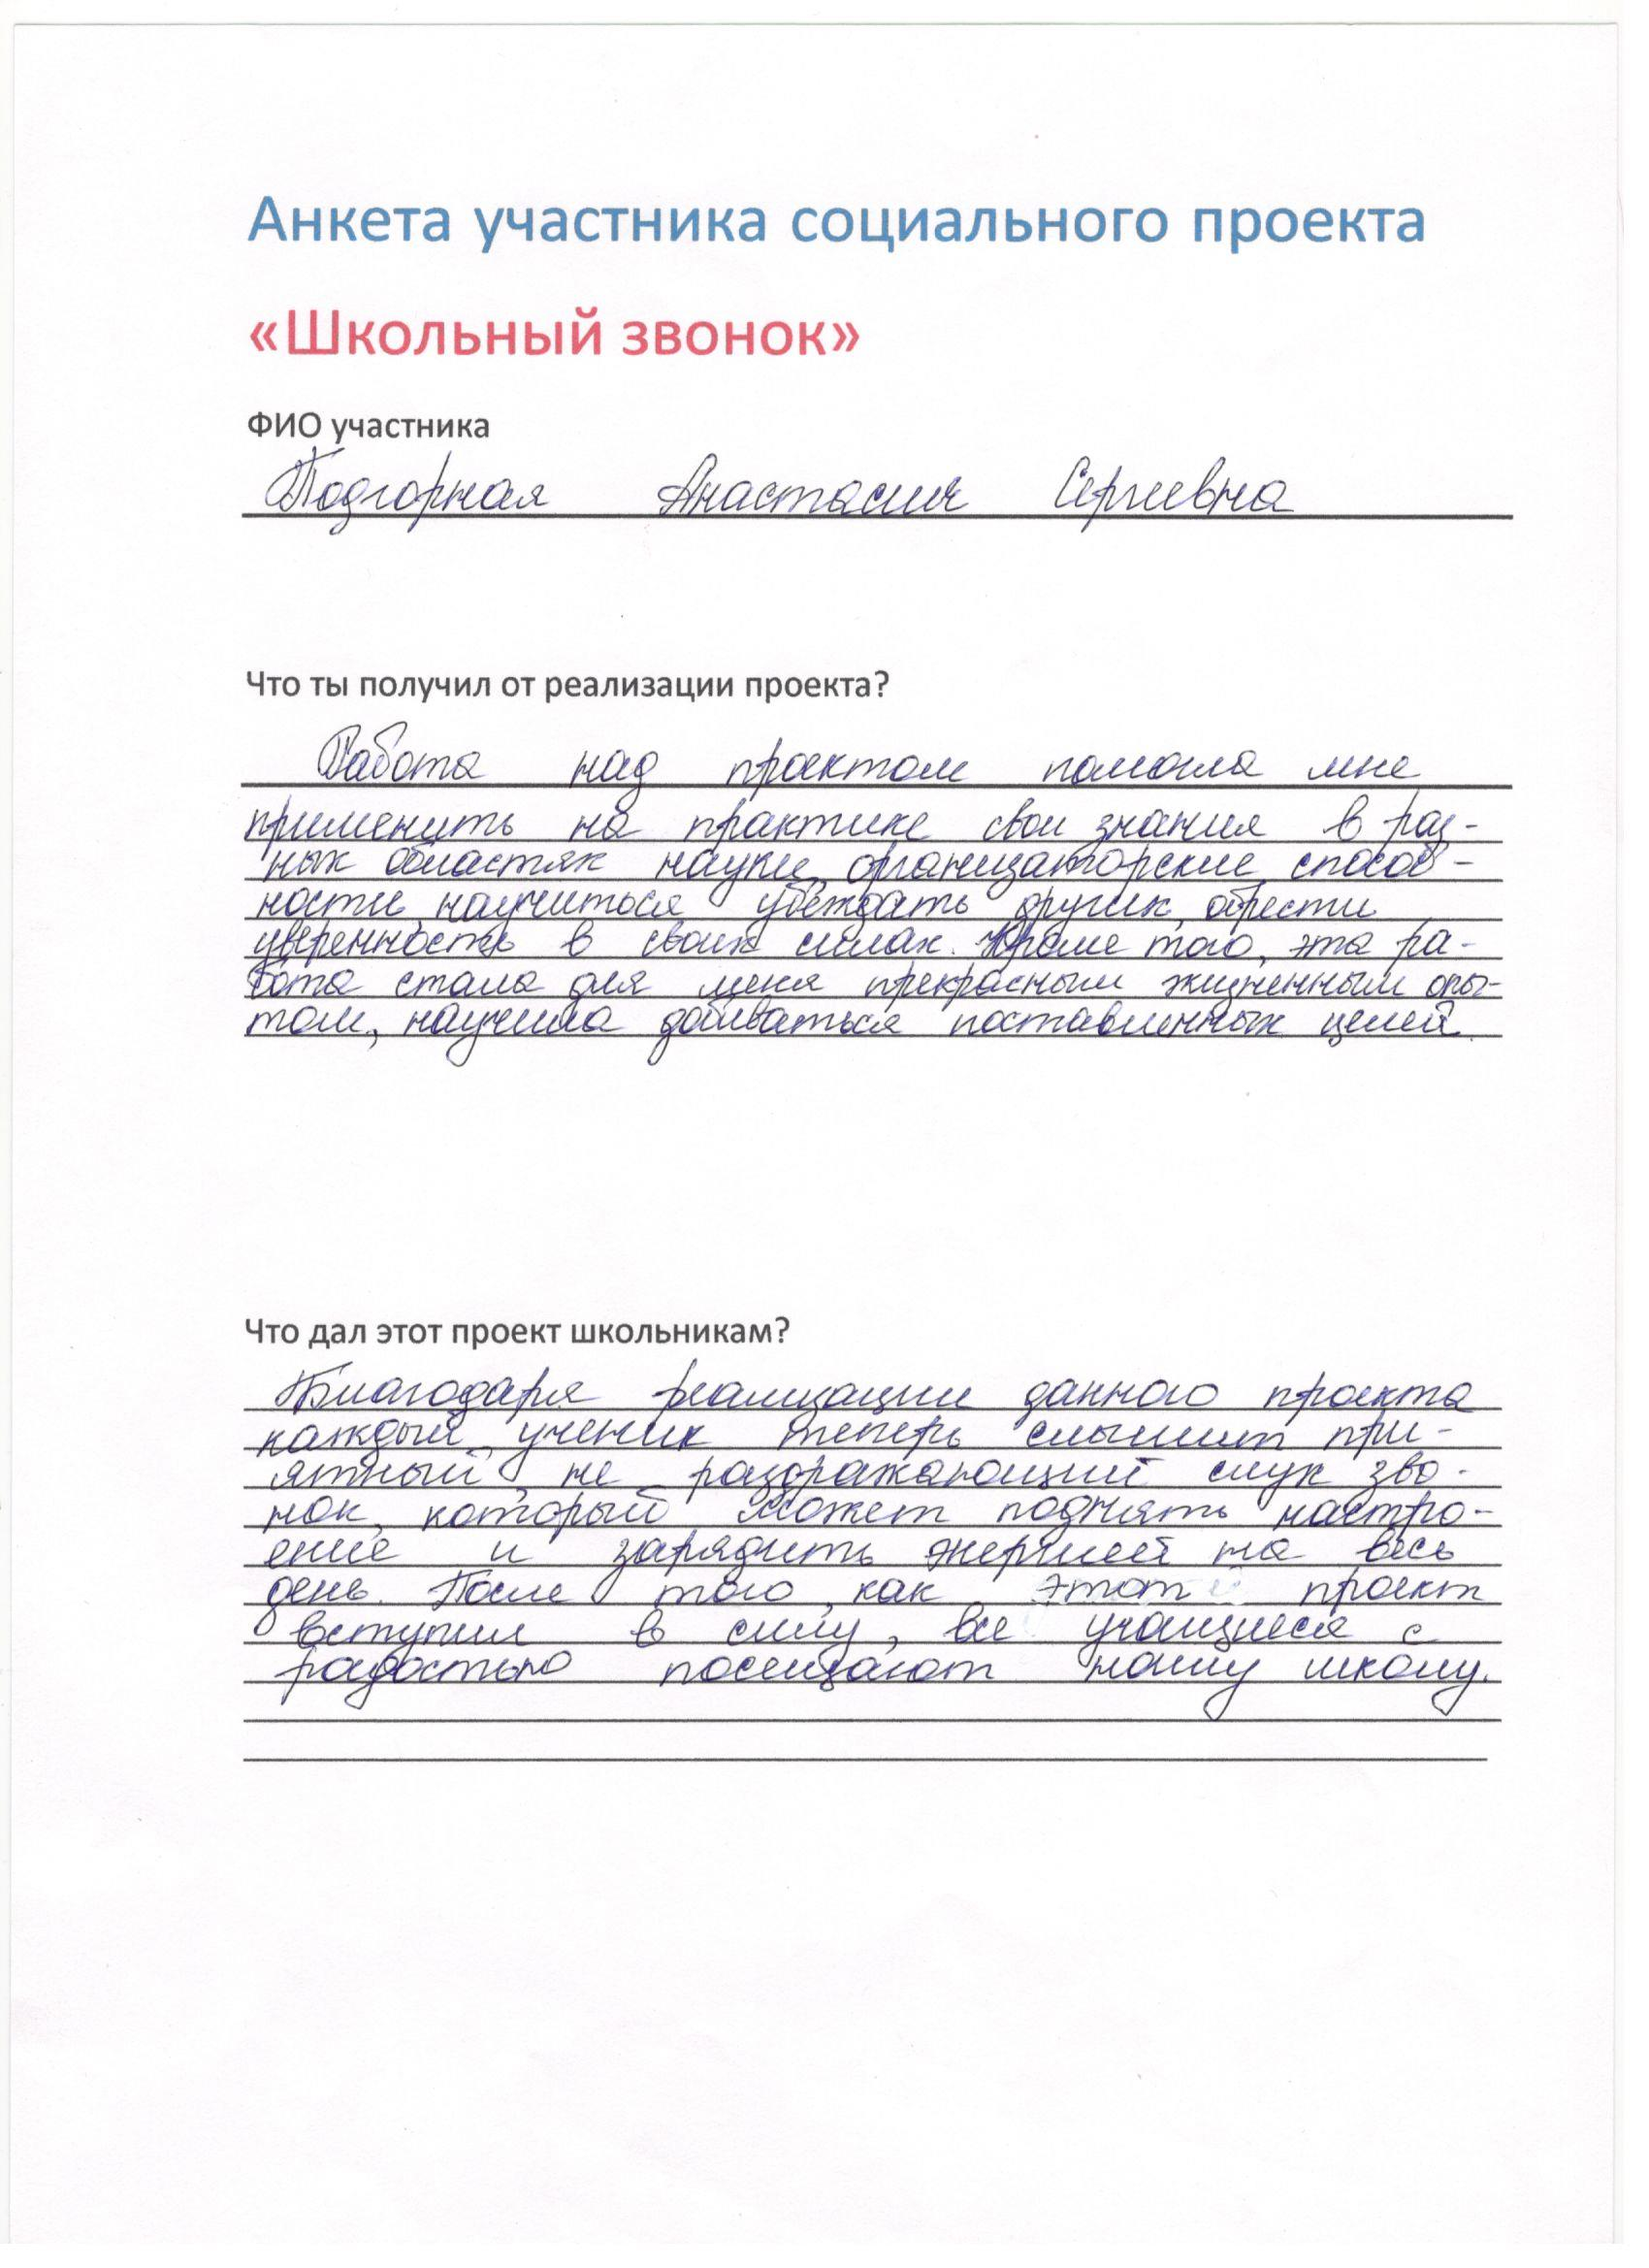 Анкета участника социального проекта
«Школьный звонок»
ФИО участника
Подгорная Анастасия Сергеевна
Что ты получил от реализации проекта?
Работа над проектом помогла мне
применить на практике свои знания в раз-
ных областях науки, организаторские способ-
ности, научиться убеждать других, обрести
уверенность в своих силах. Кроме того, эта ра-
бота стала для меня прекрасным жизненным опы-
том, научила добиваться поставленных целей.
Что дал этот проект школьникам?
Благодаря реализации данного проекта
каждый ученик теперь слышит при-
ятный, не раздражающий слух зво-
нок, который может поднять настро-
ение и зарядить энергией на весь
день. После того, как этот проект
вступил в силу, все учащиеся с
радостью посещают нашу школу.